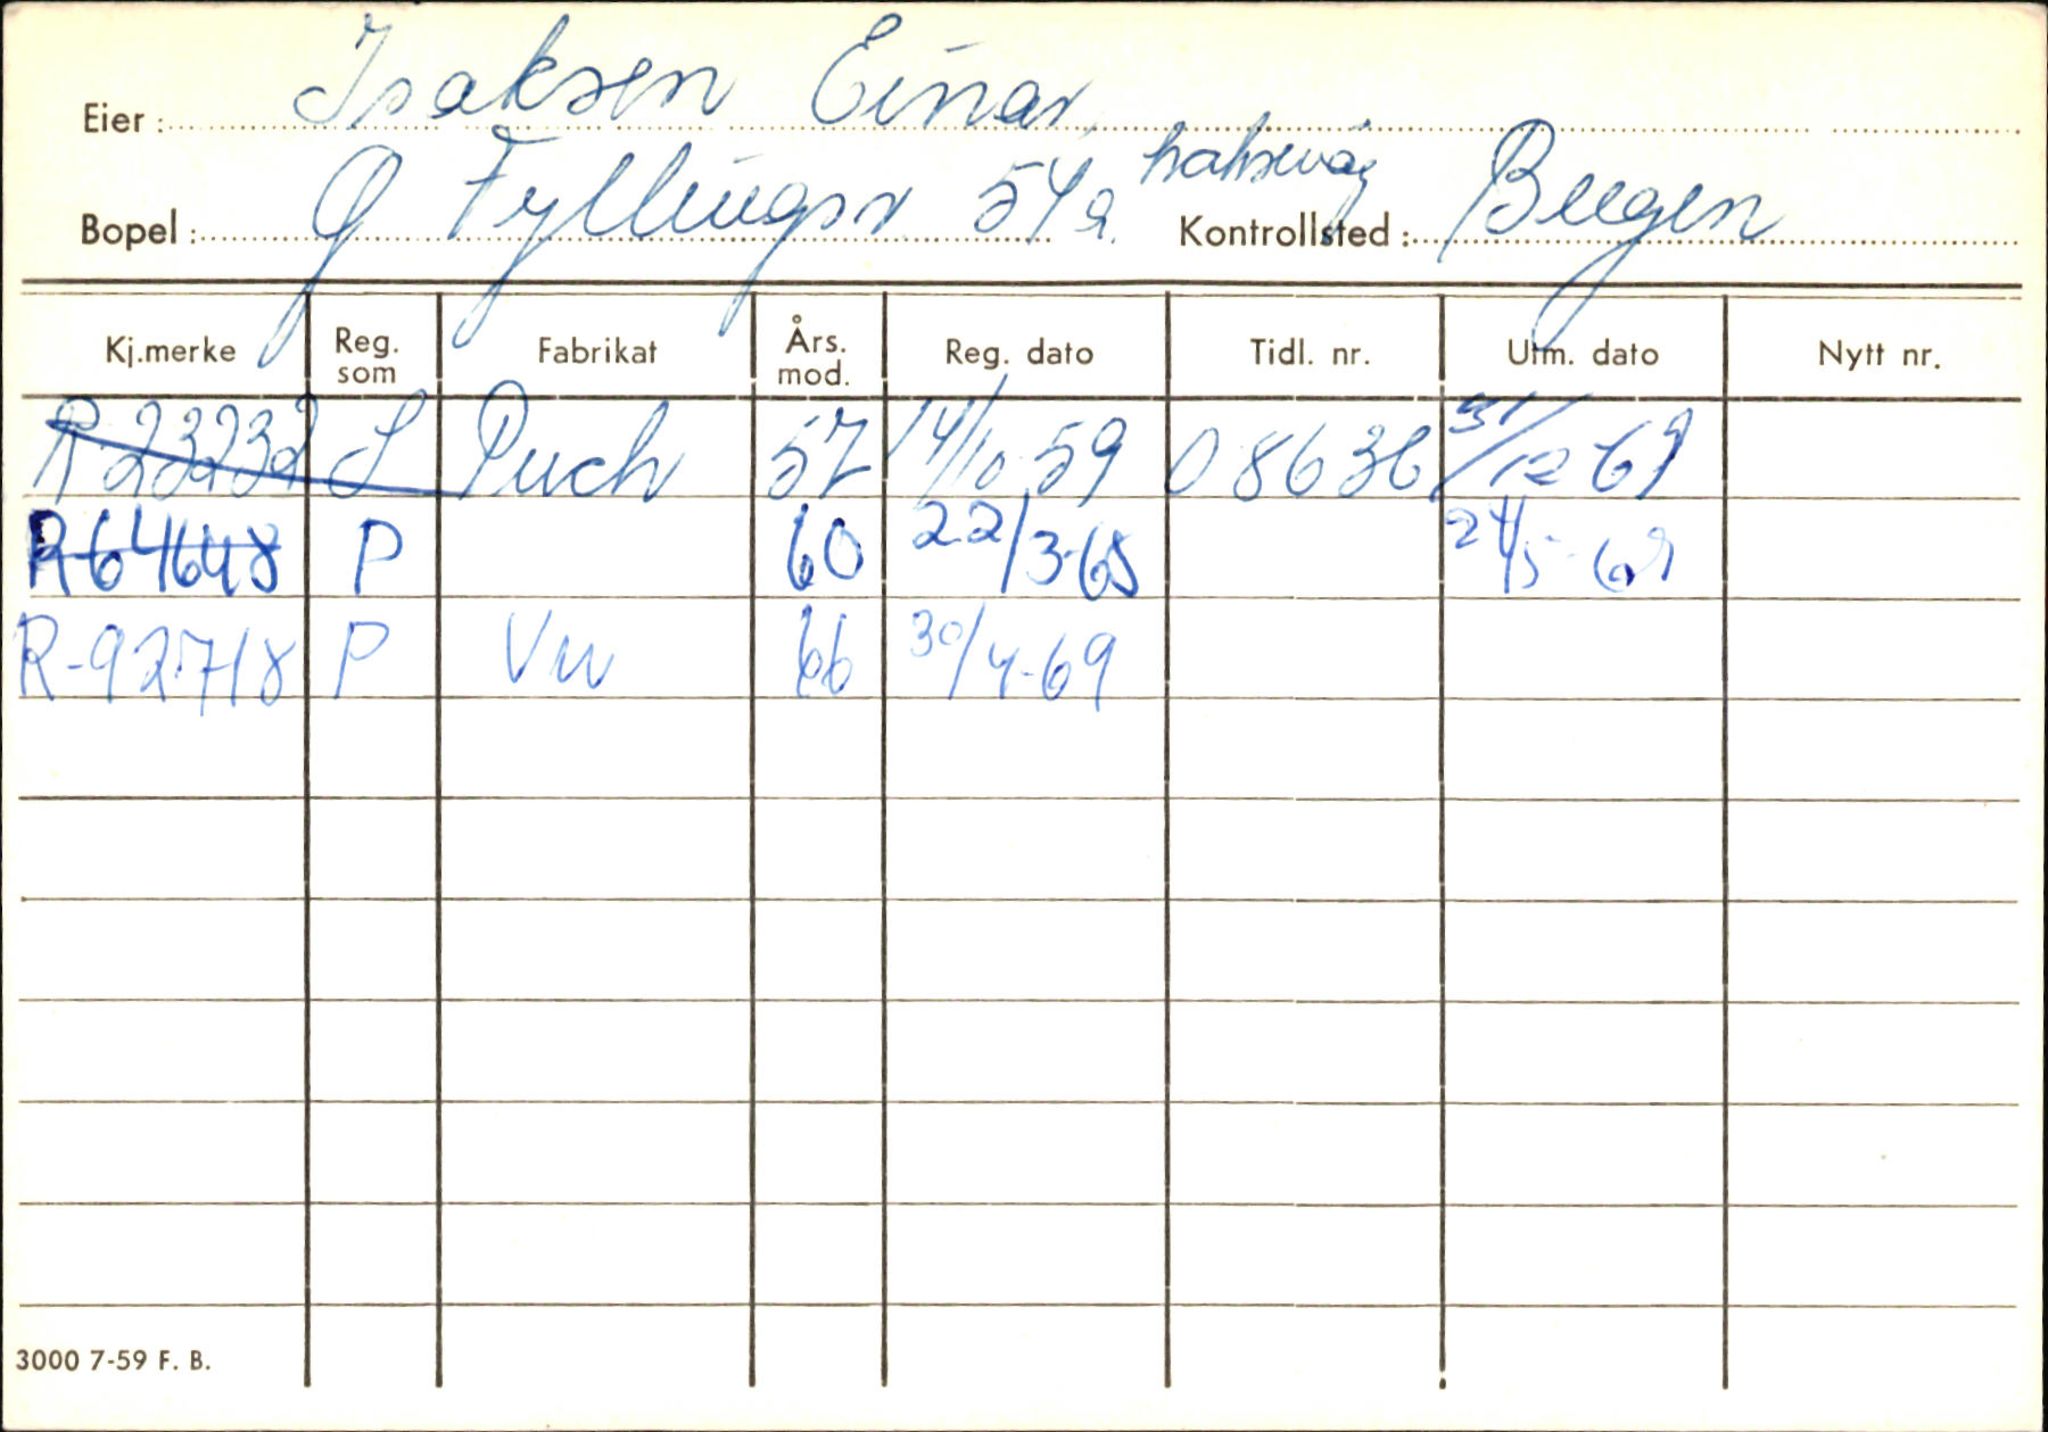 Eier: Isaksen Einar
Bopel: G Fyllingsv 54a. Laksevåg Kontrollsted: Bergen
Kj.merke Reg. som Fabrikat Års. mod. Reg. dato Tidl. nr. Utm. dato Nytt nr.
R-23232 L Puch 57 14/10 59 08636 31/12 69
R64648 P 60 22/3-65 24/5-69
R-92718 P VW 66 30/4-69
3000 7-59 F. B.